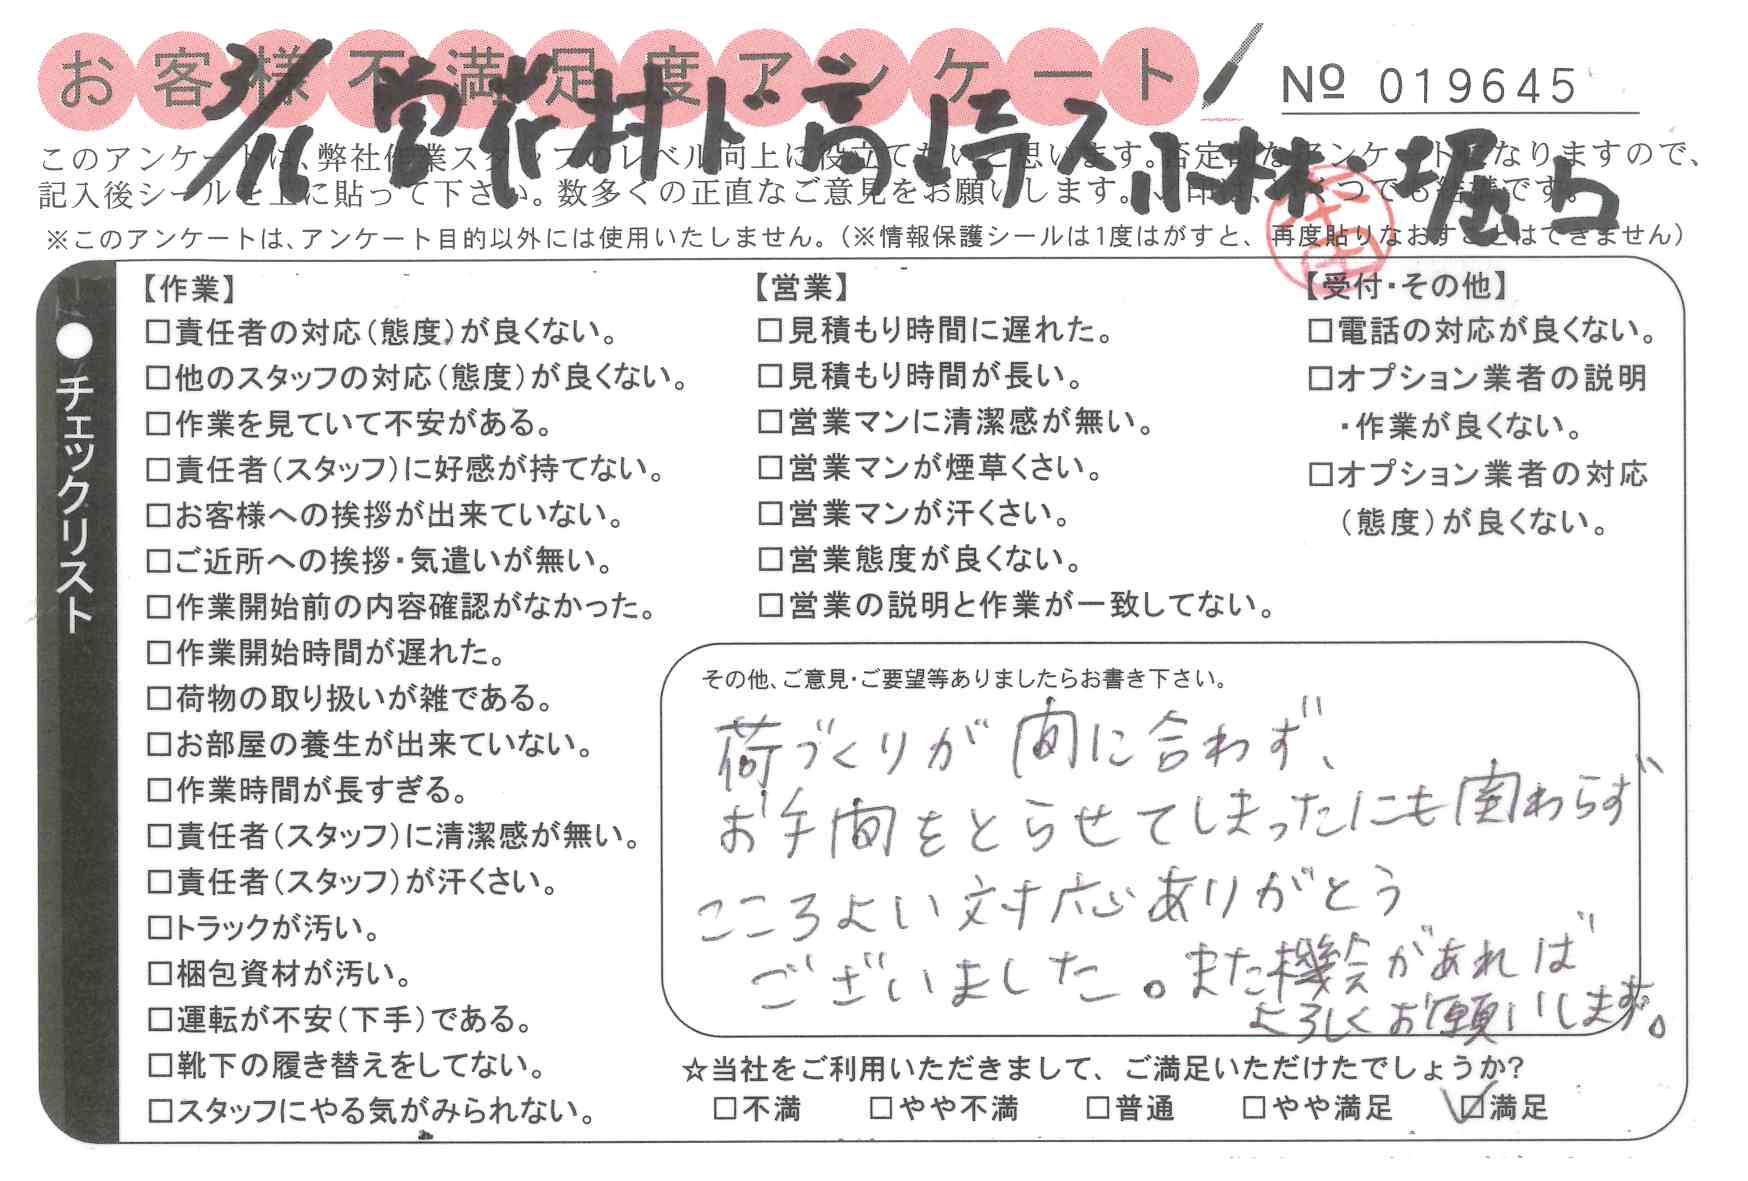 お客様不満足度アンケート
№ 019645
3/16 営 花村 ド高崎ス 小林、堀口
このアンケートは、弊社作業スタッフのレベル向上に役立てたいと思います。否定的なアンケートになりますので、
記入後シールを上に貼って下さい。数多くの正直なご意見をお願いします。
※このアンケートは、アンケート目的以外には使用いたしません。(※情報保護シールは1度はがすと、再度貼りなおすことはできません)
●チェックリスト
【作業】
□責任者の対応(態度)が良くない。
□他のスタッフの対応(態度)が良くない。
□作業を見ていて不安がある。
□責任者(スタッフ)に好感が持てない。
□お客様への挨拶が出来ていない。
□ご近所への挨拶・気遣いが無い。
□作業開始前の内容確認がなかった。
□作業開始時間が遅れた。
□荷物の取り扱いが雑である。
□お部屋の養生が出来ていない。
□作業時間が長すぎる。
□責任者(スタッフ)に清潔感が無い。
□責任者(スタッフ)が汗くさい。
□トラックが汚い。
□梱包資材が汚い。
□運転が不安(下手)である。
□靴下の履き替えをしてない。
□スタッフにやる気がみられない。
【営業】
□見積もり時間に遅れた。
□見積もり時間が長い。
□営業マンに清潔感が無い。
□営業マンが煙草くさい。
□営業マンが汗くさい。
□営業態度が良くない。
□営業の説明と作業が一致してない。
【受付・その他】
□電話の対応が良くない。
□オプション業者の説明
・作業が良くない。
□オプション業者の対応
(態度)が良くない。
その他、ご意見・ご要望等ありましたらお書き下さい。
荷づくりが間に合わず、
お手間をとらせてしまったにも関わらず
こころよい対応ありがとう
ございました。また機会があれば
よろしくお願いします。
☆当社をご利用いただきまして、ご満足いただけたでしょうか?
□不満 □やや不満 □普通 □やや満足 ☑満足